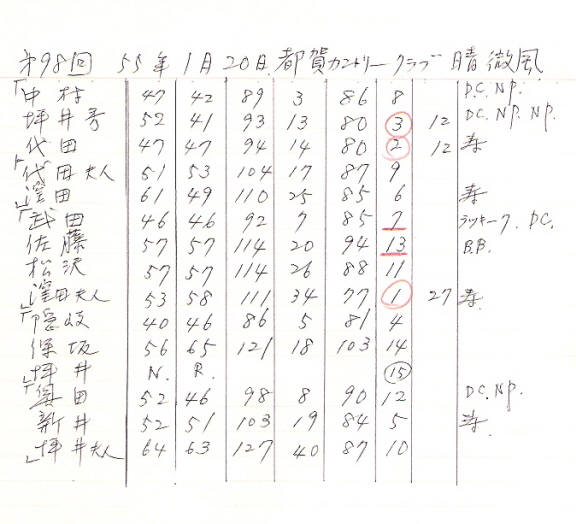 第98回 55年1月20日 都賀カントリークラブ 晴 微風
「中村 47 42 89 3 86 8 D.C. N.P.
坪井 52 41 93 13 80 ③ 12 DC. NP. NP.
代田 47 47 94 14 80 ② 12 寿
代田夫人 51 53 104 17 87 9
窪田 61 49 110 25 85 6 寿
武田 46 46 92 7 85 7 ラッキー7. DC.
佐藤 57 57 114 20 94 13 B.B.
松沢 57 57 114 26 88 11
窪田夫人 53 58 111 34 77 ① 27 寿.
隠岐 40 46 86 5 81 4
保坂 56 65 121 18 103 14
坪井 N. R. ⑮
田 52 46 98 8 90 12 DC. NP.
新井 52 51 103 19 84 5 寿.
坪井夫人 64 63 127 40 87 10